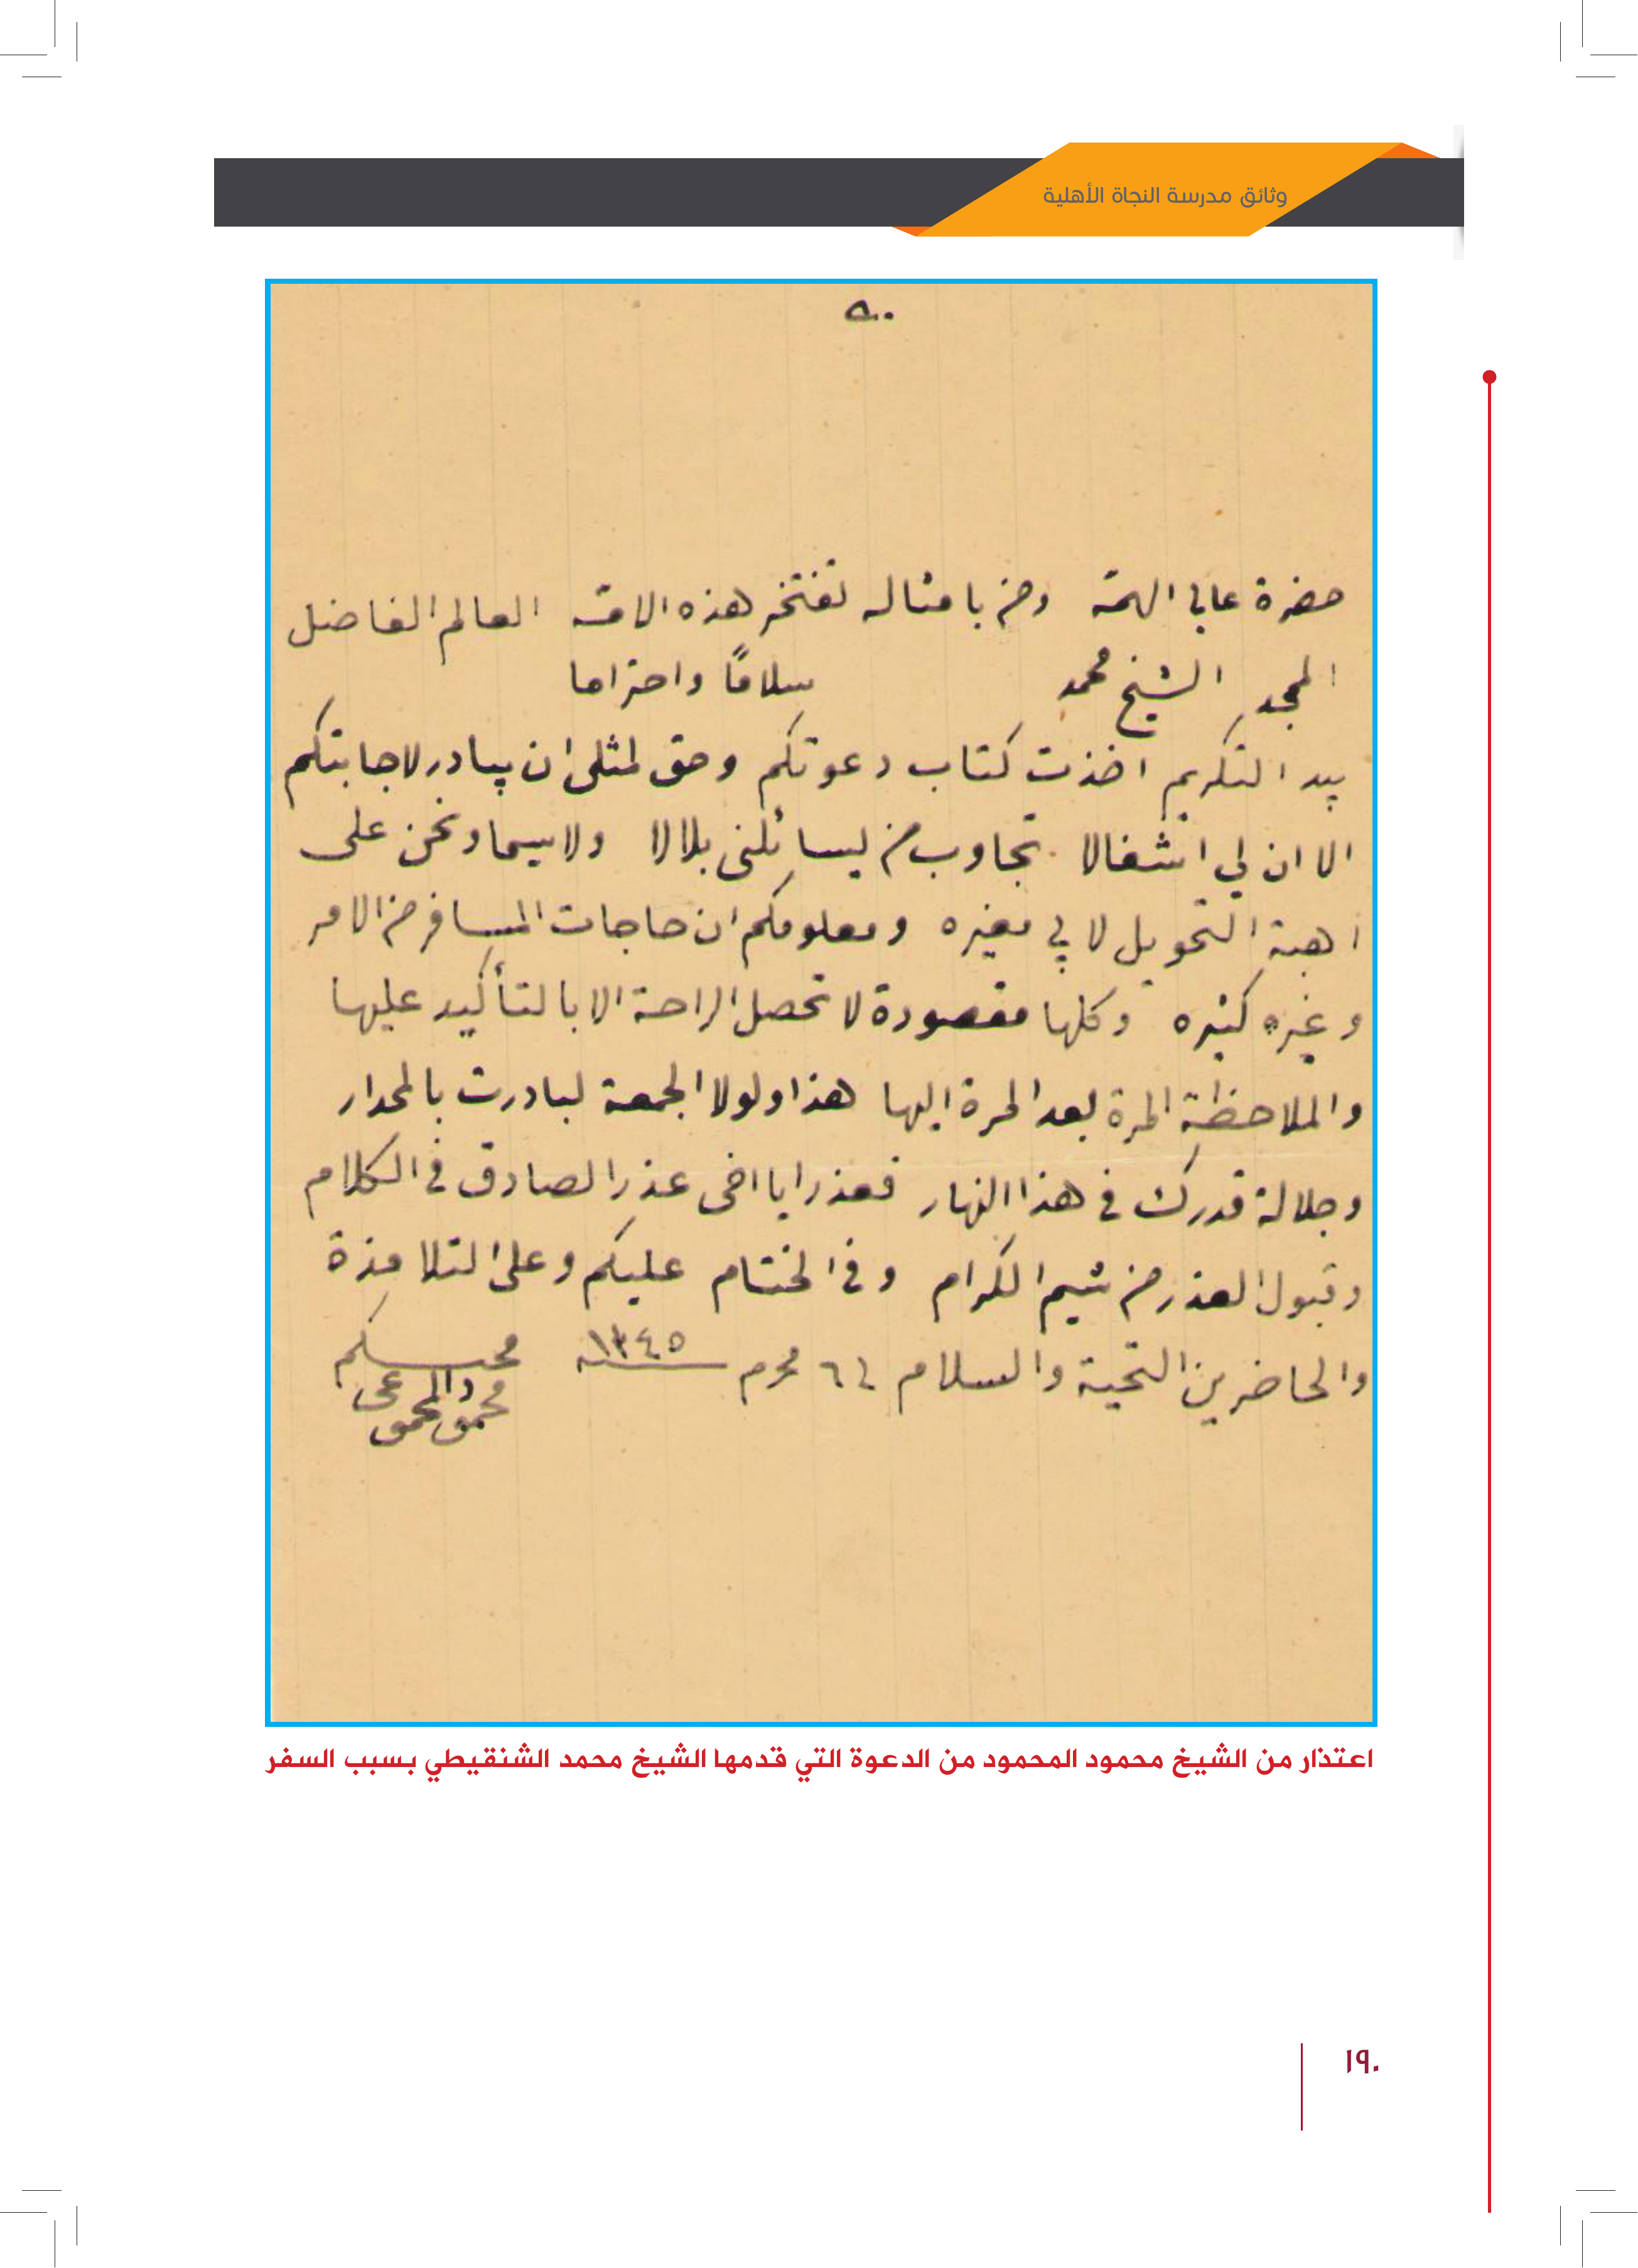 وثائق مدرسة النجاة الأهلية
٥٠٠
حضرة عالي الهمة ومن بامثاله تفتخر هذه الامة العالم الفاضل
الامجد الشيخ محمد سلاما واحتراما
بيد التكريم اخذت كتاب دعوتكم وحق لمثلى ان يبادر لاجابتكم
الا ان لي اشغالا تجاوب من ليسائلنى بلالا ولا سيما ونحن على
اهبة التحويل لا في مغيره ومعلومكم ان حاجات المسافر من الامر
وغيره كثيره وكلها مقصودة لا تحصل الراحة الا بالتأكيد عليها
والملاحظة المرة بعد المرة اليها هذا ولولا الجمعة لبادرت بالمحدار
وجلالة قدرك في هذا النهار فعذرا يا اخى عذر الصادق في الكلام
وقبول العذر من شيم الكرام وفي الختام عليكم وعلى التلامذة
والحاضرين التحية والسلام في ٦ محرم سنة ١٣٤٥ محبكم
محمود المحمود
اعتذار من الشيخ محمود المحمود من الدعوة التي قدمها الشيخ محمد الشنقيطي بسبب السفر
١٩٠